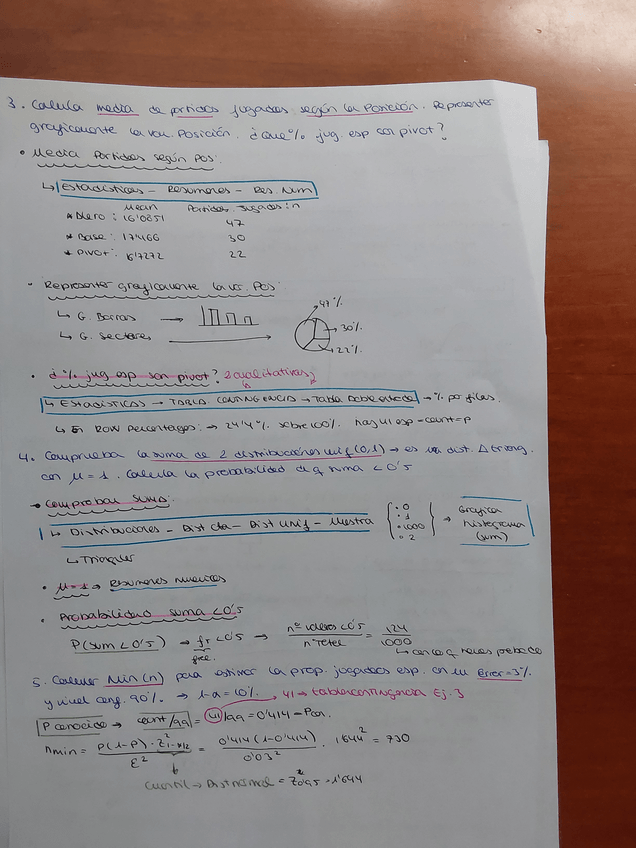 3. Calcula media de partidos jugados según la Posición. Representar
graficamente la var. Posición. ¿Que % jug. esp son pivot?
• Media Partidos según Pos:
↳ Estadísticas - Resumenes - Res. Num
Mean Partidos Jugados: n
* Alero: 16'0851 47
* Base: 17'466 30
* Pivot: 16'7272 22
• Representar graficamente la var. Pos:
↳ G. Barras →
↳ G. Sectores →
47%
30%
22%
• ¿% jug esp son pivot? 2 cualitativas
↳ Estadísticas → TABLA CONTINGENCIA → Tabla Doble entrada → % por filas.
↳ En ROW Percentages: → 24'4% sobre 100% hay 41 esp - count = P
4. Comprueba la suma de 2 distribuciones unif (0,1) → es una dist. Δ triang.
con μ = 1. Calcula la probabilidad de q suma < 0'5
→ Comprobar SUMA:
↳ Distribuciones - Dist Cta - Dist Unif - Muestra
• 0
• 1
• 1000
• 2
⇒ Grafica
histograma
(sum)
↳ Triangular
• μ = 1 ⇒ Resumenes numericos
• Probabilidad suma < 0'5
P(sum < 0'5) → fr < 0'5 → nº valores < 0'5 / nº Total = 124 / 1000
5. Calcular Min(n) para estimar la prop. jugadores esp. con un error = 3%
y nivel conf. 90%. → 1-α = 10%. 41 → tabla contingencia Ej. 3
P conocido → count/99 = 41/99 = 0'414 -
nmin = P(1-P) · Z²1-α/2 / ε² = 0'414 (1-0'414) / 0'03² · 1'644² = 730
Cuantil → Dist normal = Z0'95 = 1'644